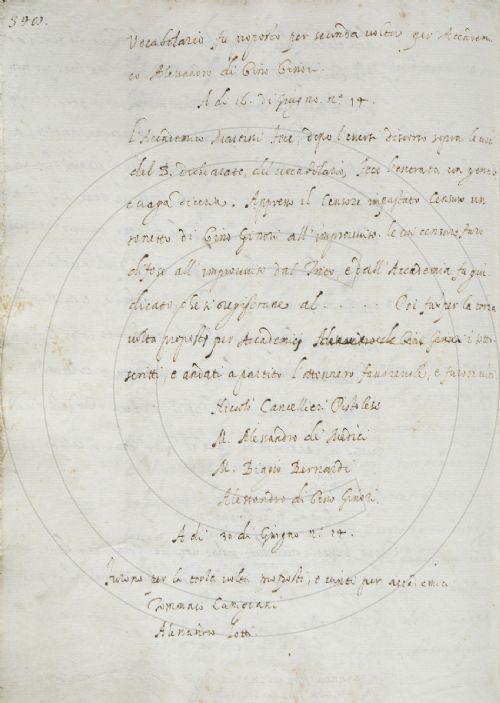 Vocabolario fu proposto per seconda volta per Accadem
co Alessandro di Gino Ginori.
A di 16. di Giugno. n.° 14.
l'Accademico fece, dopo l'haver discorso sopra le voci
del B. dichiarate, del vocabolario, fece l'entrata un
e vaga diceria. Appresso il Censore Censurò un
sonetto di Gino Ginori all'improvviso, le cui censure furo
difese all'improvviso dal e dall'Accademia fu giu
dicato al . . . . . . Poi fur per la terza
volta proposti per Accademici i sotto
scritti, e andati a partito l'ottennero favorevole, e furon vinti
Niccolò Cancellieri Pistolese
M. Alessandro de Medici
M. Biagio Bernardi
Alessandro di Gino Ginori
A di 30 di Giugno n.° 14.
Furono per la terza volta proposti, e vinti per accademici
Tommaso
Alessandro